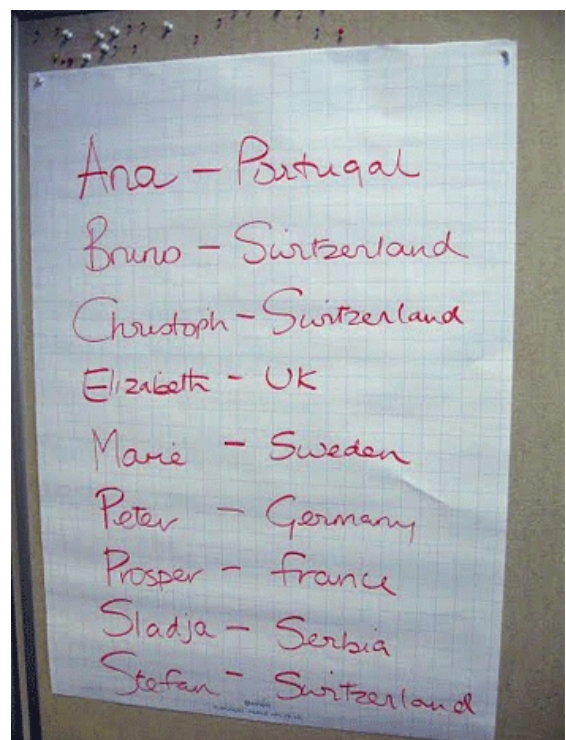 Ana - Portugal
Bruno - Switzerland
Christoph - Switzerland
Elizabeth - UK
Marie - Sweden
Peter - Germany
Prosper - France
Sladja - Serbia
Stefan - Switzerland